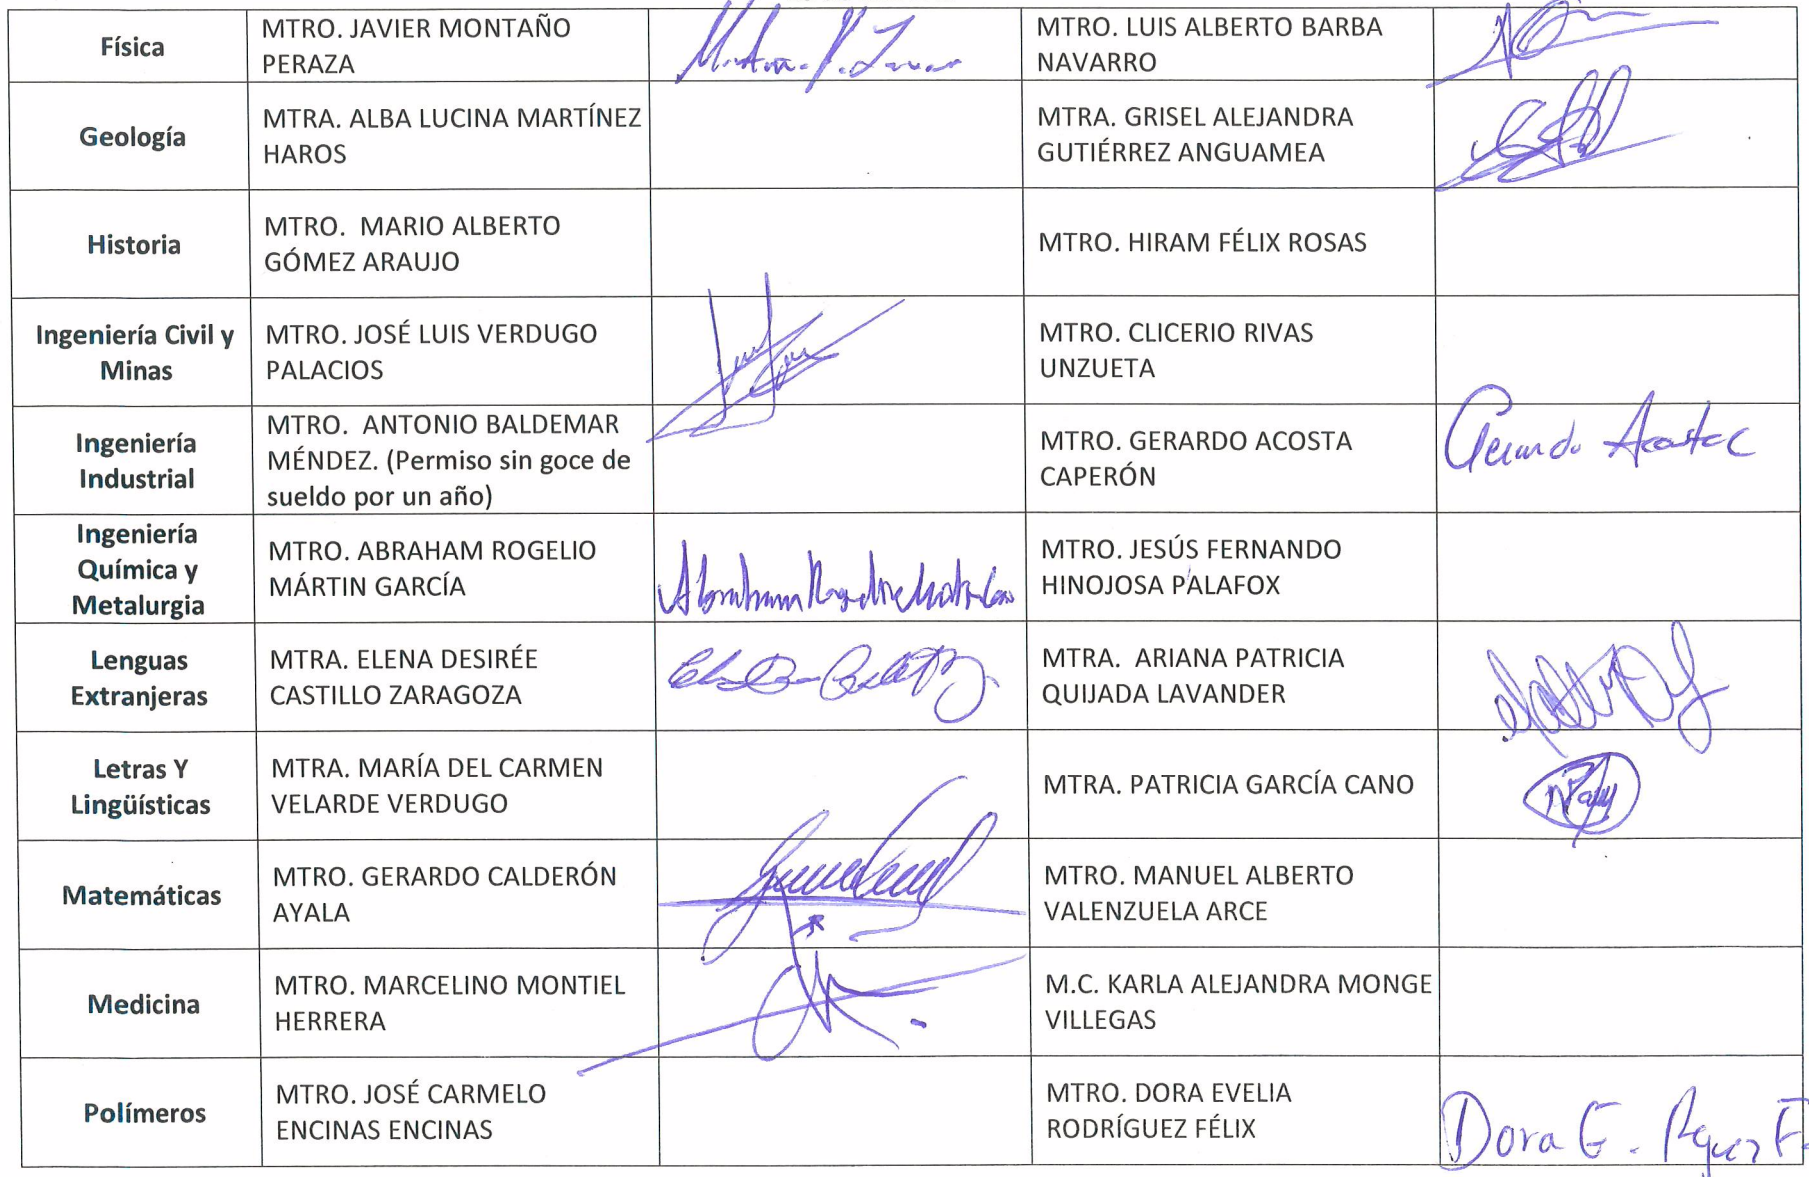 Física
MTRO. JAVIER MONTAÑO
PERAZA
MTRO. LUIS ALBERTO BARBA
NAVARRO
Geología
MTRA. ALBA LUCINA MARTÍNEZ
HAROS
MTRA. GRISEL ALEJANDRA
GUTIÉRREZ ANGUAMEA
Historia
MTRO. MARIO ALBERTO
GÓMEZ ARAUJO
MTRO. HIRAM FÉLIX ROSAS
Ingeniería Civil y
Minas
MTRO. JOSÉ LUIS VERDUGO
PALACIOS
MTRO. CLICERIO RIVAS
UNZUETA
Ingeniería
Industrial
MTRO. ANTONIO BALDEMAR
MÉNDEZ. (Permiso sin goce de
sueldo por un año)
MTRO. GERARDO ACOSTA
CAPERÓN
Gerardo Acosta C
Ingeniería
Química y
Metalurgia
MTRO. ABRAHAM ROGELIO
MÁRTIN GARCÍA
Abraham
MTRO. JESÚS FERNANDO
HINOJOSA PALAFOX
Lenguas
Extranjeras
MTRA. ELENA DESIRÉE
CASTILLO ZARAGOZA
MTRA. ARIANA PATRICIA
QUIJADA LAVANDER
Letras Y
Lingüísticas
MTRA. MARÍA DEL CARMEN
VELARDE VERDUGO
MTRA. PATRICIA GARCÍA CANO
Matemáticas
MTRO. GERARDO CALDERÓN
AYALA
MTRO. MANUEL ALBERTO
VALENZUELA ARCE
Medicina
MTRO. MARCELINO MONTIEL
HERRERA
M.C. KARLA ALEJANDRA MONGE
VILLEGAS
Polímeros
MTRO. JOSÉ CARMELO
ENCINAS ENCINAS
MTRO. DORA EVELIA
RODRÍGUEZ FÉLIX
Dora E.